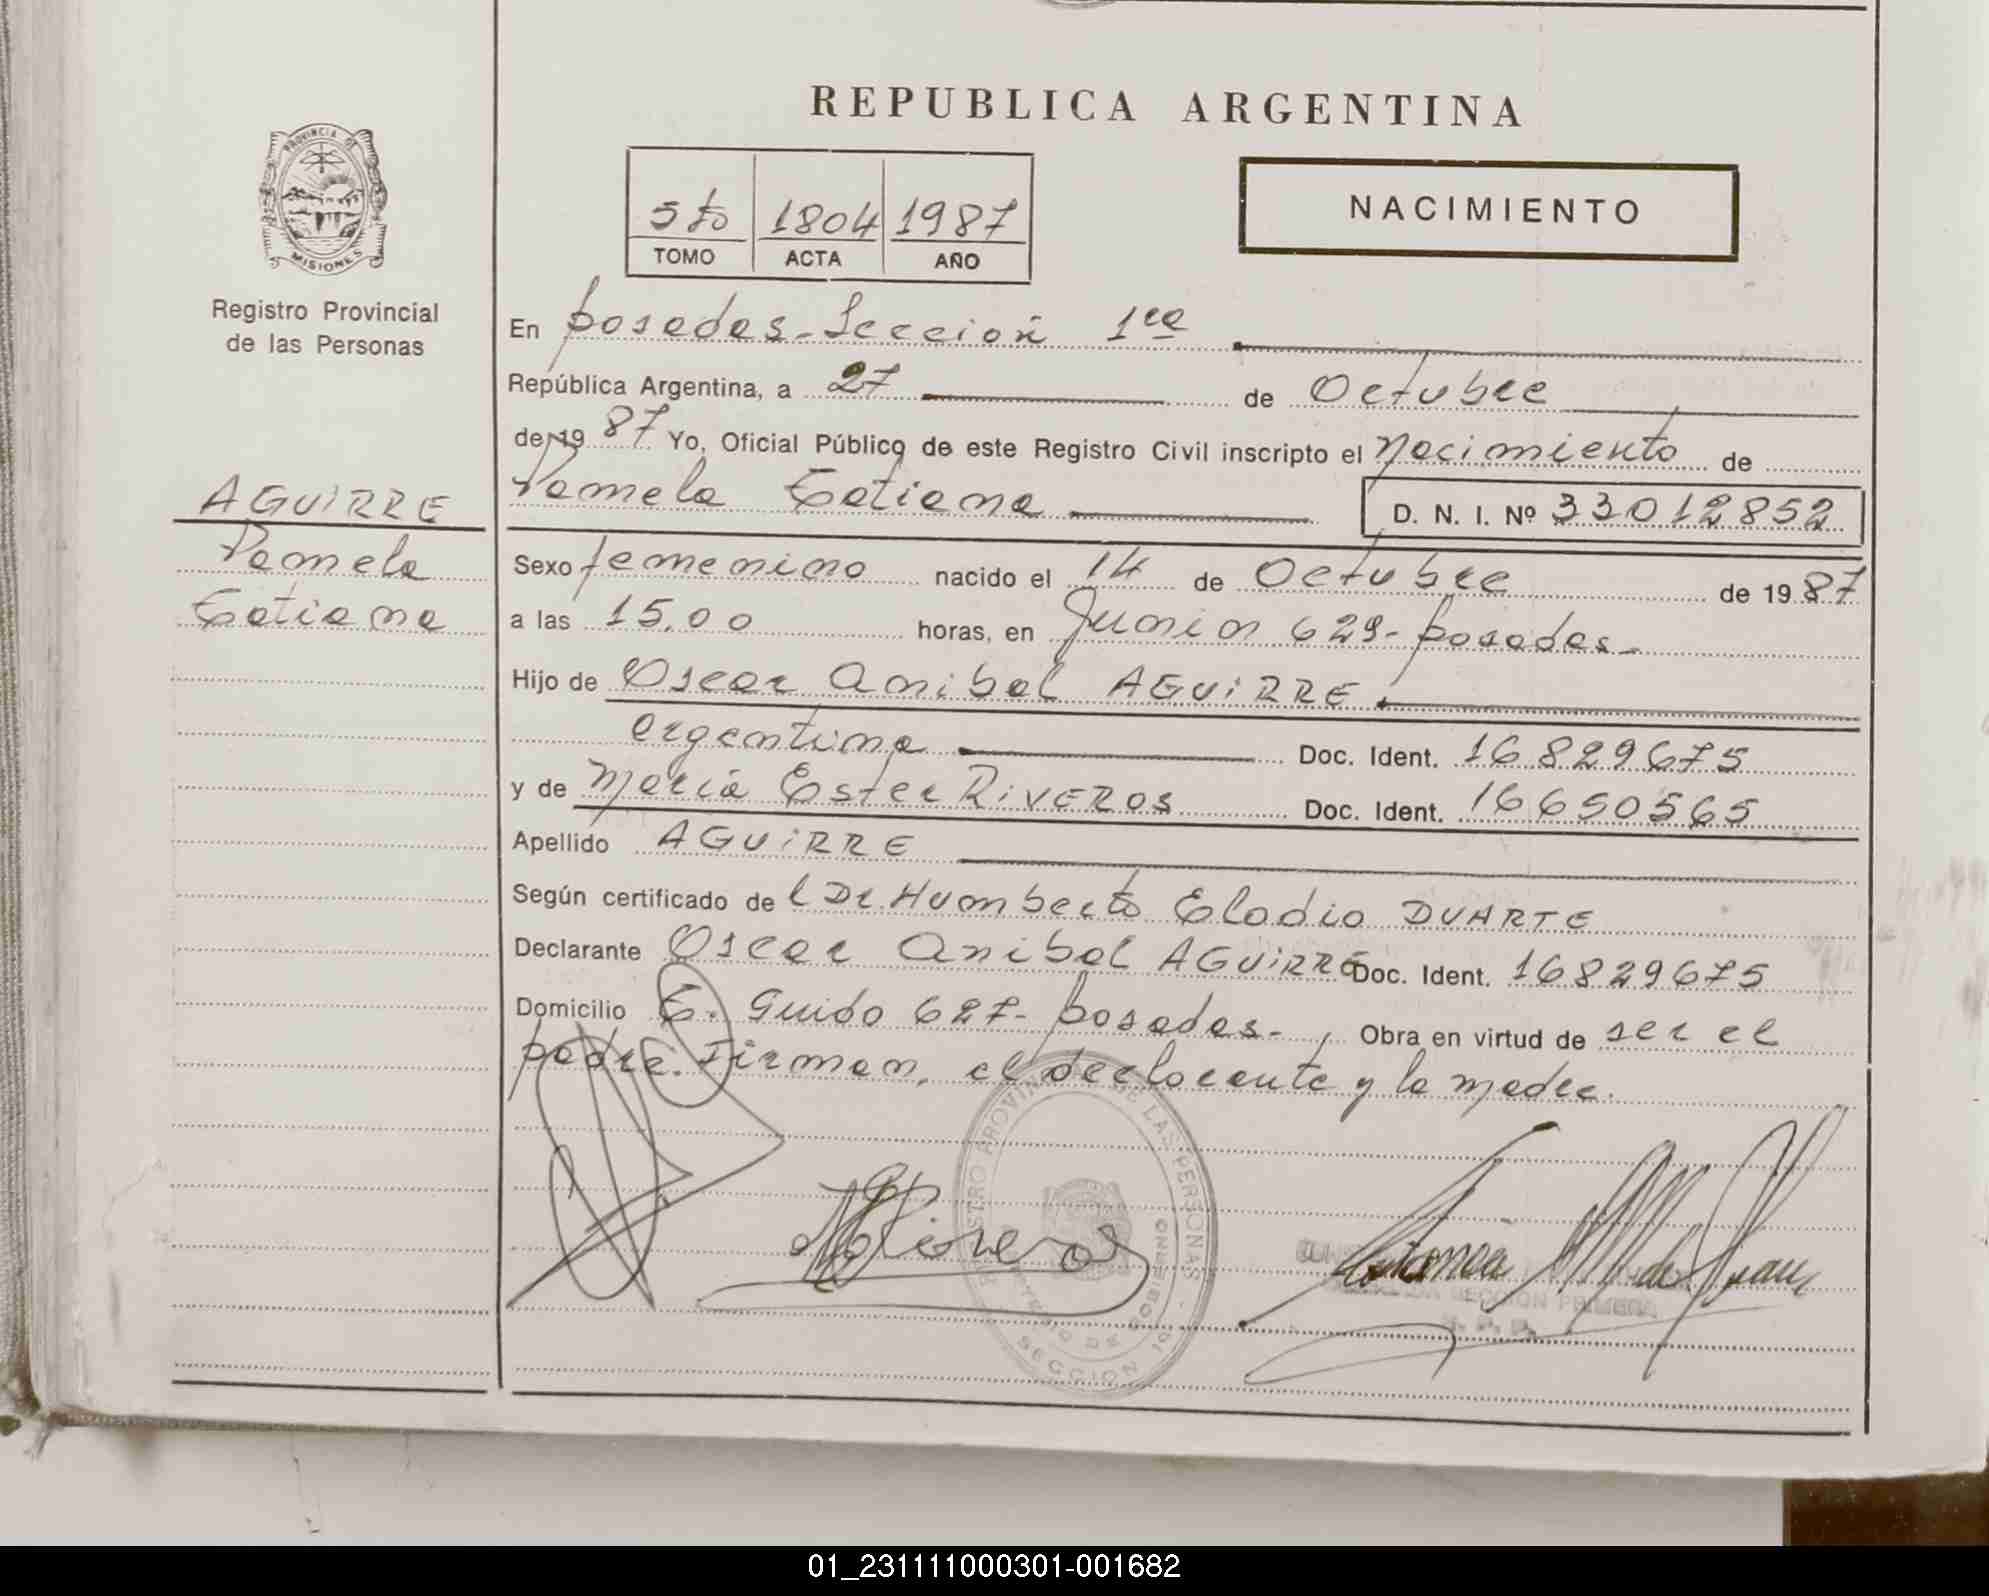 REPUBLICA ARGENTINA
PROVINCIA DE MISIONES
Registro Provincial
de las Personas
5to 1804 1987
TOMO ACTA AÑO
NACIMIENTO
En Posadas-Sección 1ra
República Argentina, a 27 de Octubre
de 1987 Yo, Oficial Público de este Registro Civil inscripto el Nacimiento de
Pamela Tatiana D. N. I. Nº 33012852
AGUIRRE
Pamela
Tatiana
Sexo femenino nacido el 14 de Octubre de 1987
a las 15,00 horas, en Junin 629- Posadas-
Hijo de Oscar Anibal AGUIRRE
argentina Doc. Ident. 16829675
y de María Ester RIVEROS Doc. Ident. 16650565
Apellido AGUIRRE
Según certificado de l Dr. Humberto Eladio DUARTE
Declarante Oscar Anibal AGUIRRE Doc. Ident. 16829675
Domicilio T. Guido 627- Posadas-, Obra en virtud de ser el
padre. Firman, el declarante y la madre.
REGISTRO PROVINCIAL DE LAS PERSONAS
MINISTERIO DE GOBIERNO
SECCION 1a
SECCION PRIMERA
01_231111000301-001682